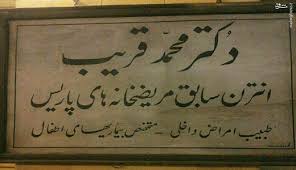 دکتر محمد قریب
انترن سابق مریضخانه های پاریس
طبیب امراض داخلی - متخصص بیماریهای اطفال